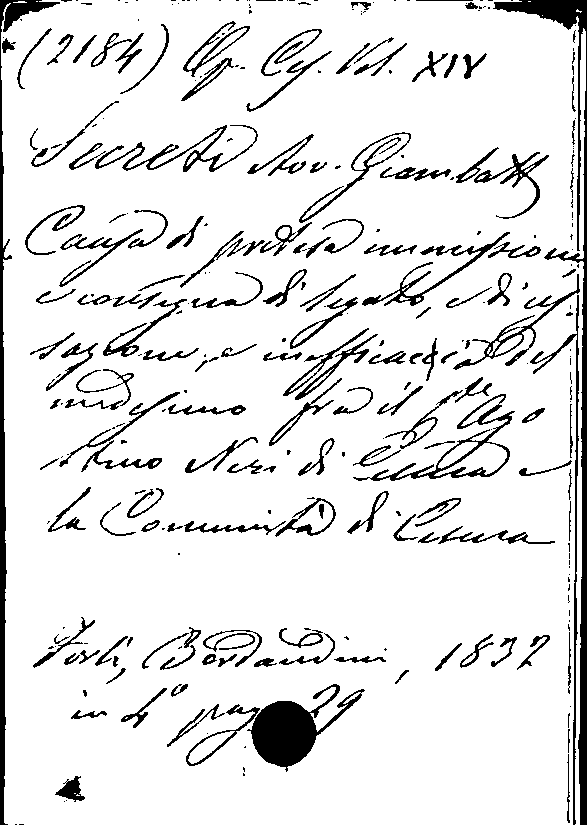 (2184) Op. Ces. Vol. XIV
Secreti Avv. Giambatt
Causa di pretesa immissione,
e consegna di legato, e di ces-
sazione, e inefficaccia del
medesimo fra il Ago
stino Neri di Cesena e
la Comunità di Cesena
Forlì, Bordandini, 1832
in 4° pag. 29